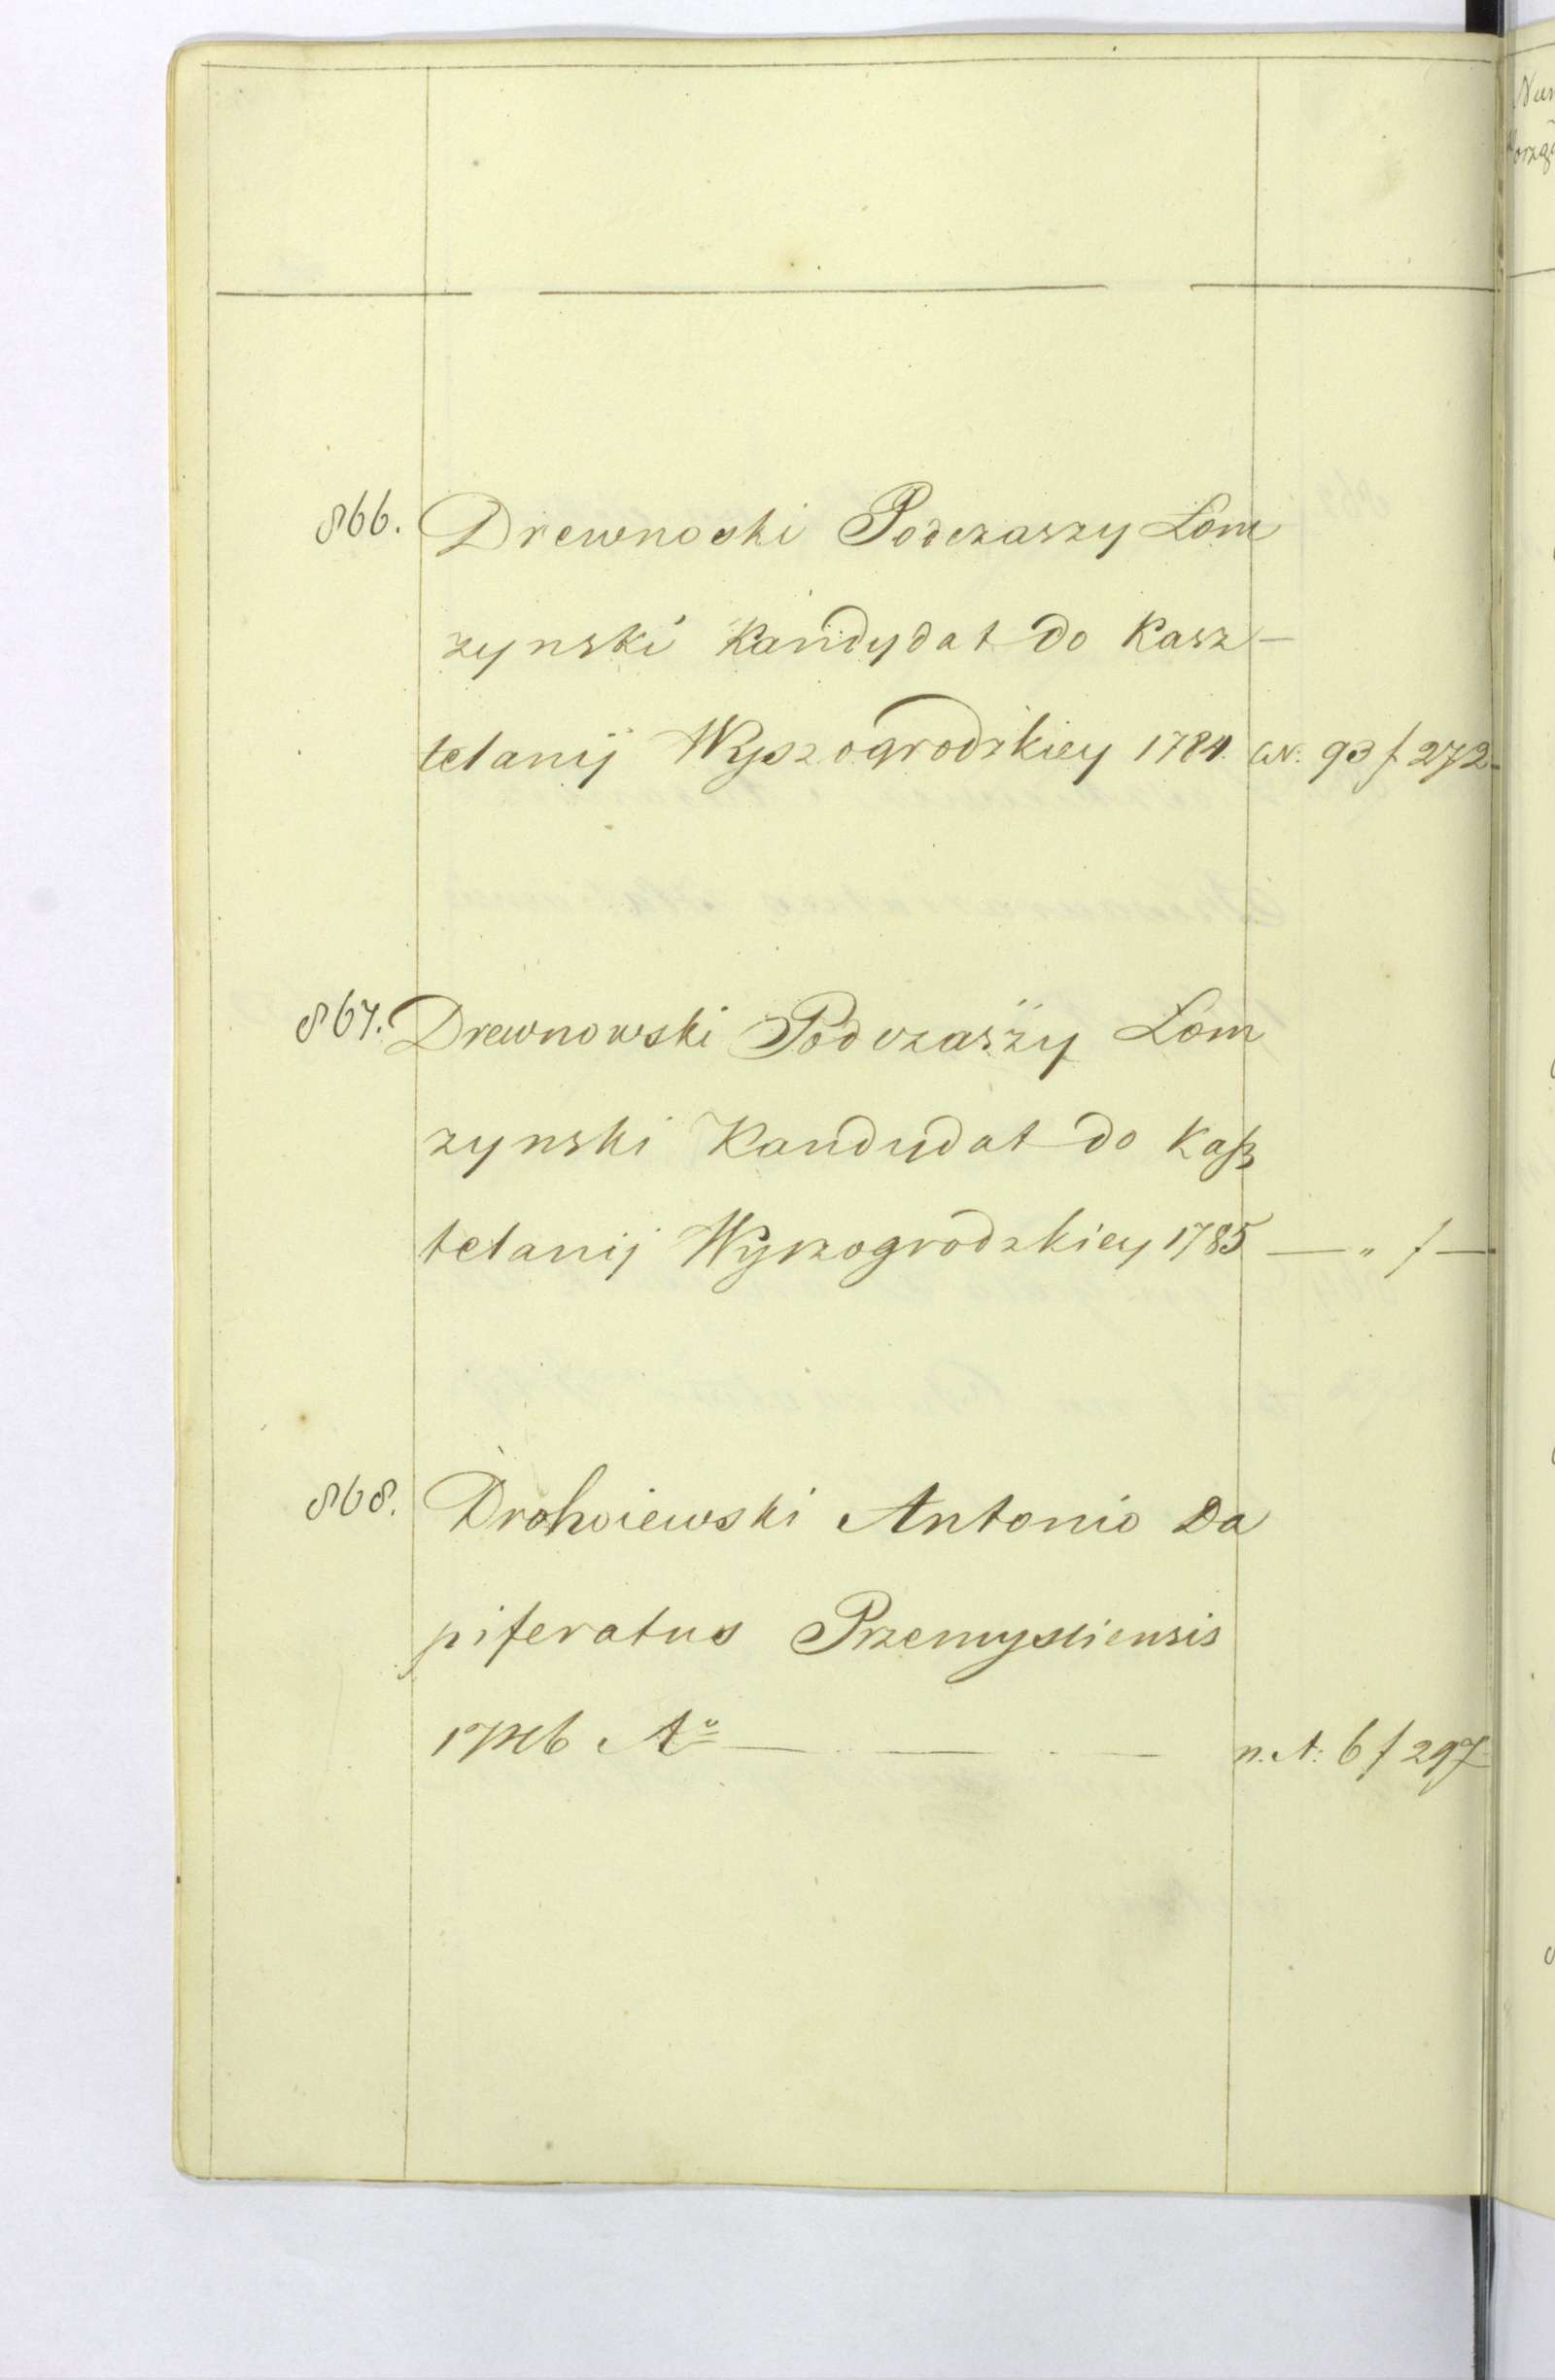 866. Drewnoski Podczaszy Lom
zynski Kandydat do Kasz-
telanij Wyszogrodzkiey 1784. W. 93 f 272
867. Drewnowski Podczaszy Lom
zynski Kandydat do Kaſz
telanij Wyszogrodzkiey 1785 — " f —
868. Drohoiewski Antonio Da
piferatus Przemysliensis
A° — — — n. A: 6 f 297